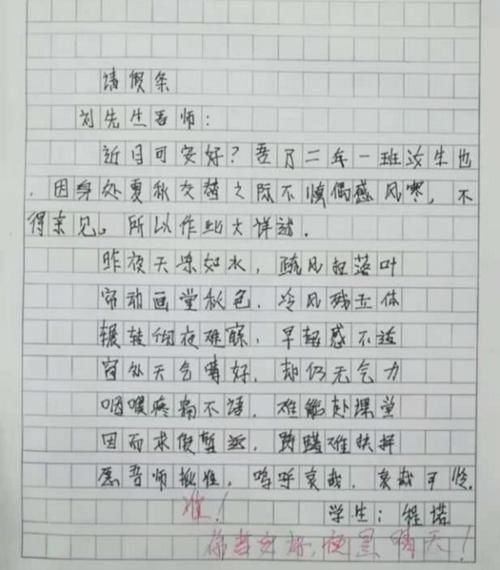 请假条
刘先生吾师:
近日可安好?吾乃二年一班汝生也
.因身处夏秋交替之际不慎偶感风寒,不
得来见。所以作此文详谈.
昨夜天凉如水,疏风扫落叶
帘动画堂秋色.冷风残玉体
辗转彻夜难寐,早起感不适
窗外天气晴好,却仍无气力
咽喉疼痛不语.难能赴课堂
因而求假暂返,踌躇难抉择
愿吾师批准,呜呼哀哉,哀哉可怜.
准!
学生:程诺
你若安好,便是晴天!